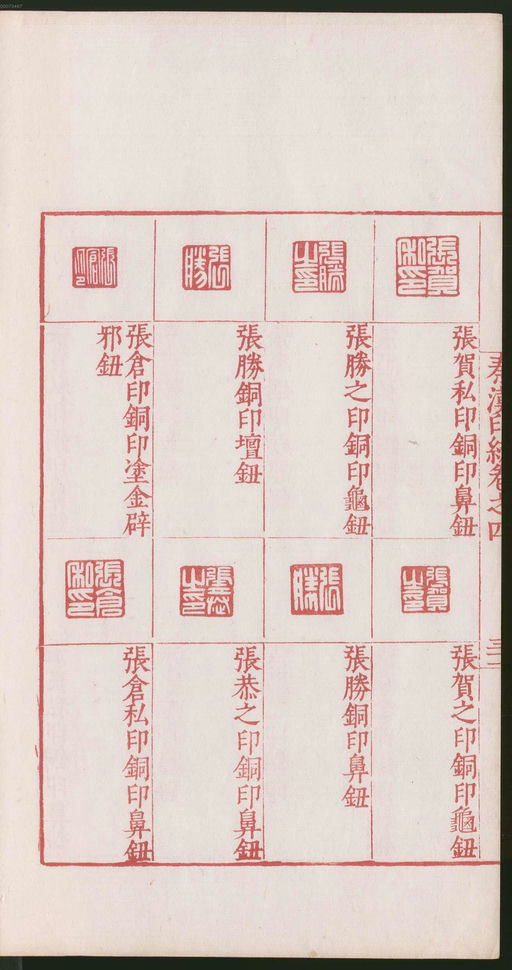 00073467
秦漢印統卷之四
張賀私印銅印鼻鈕
張勝之印銅印龜鈕
張勝銅印壇鈕
張倉印銅印塗金辟
邪鈕
張賀之印銅印龜鈕
張勝銅印鼻鈕
張恭之印銅印鼻鈕
張倉私印銅印鼻鈕